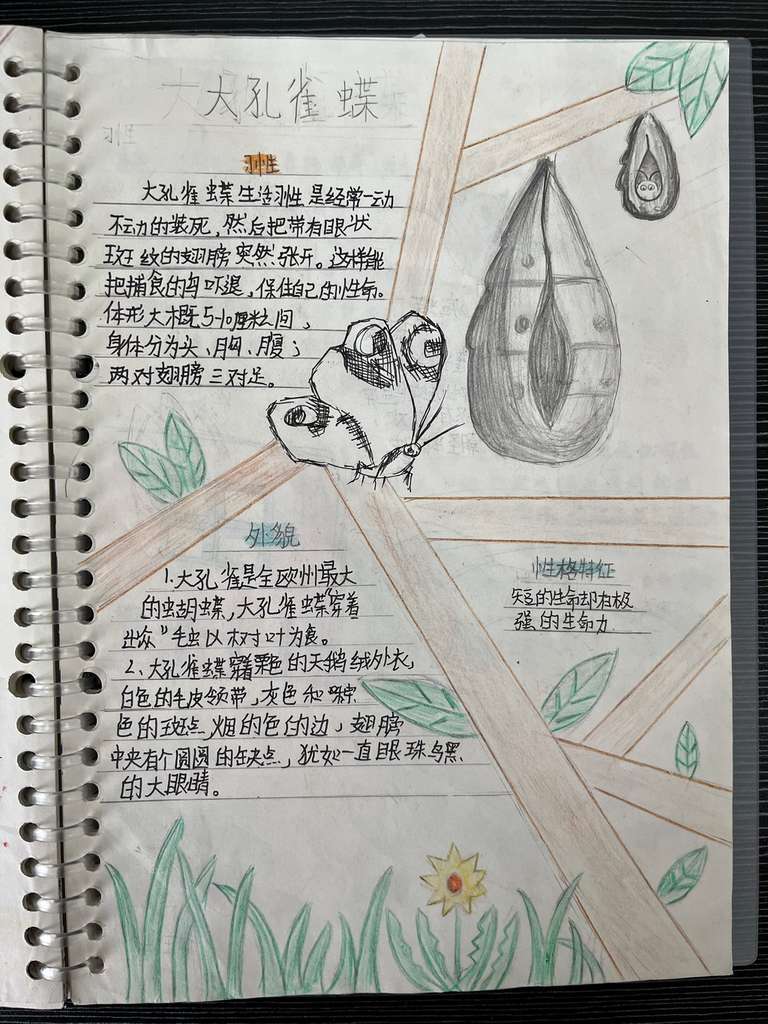 大孔雀蝶
习性
大孔雀蝶生活习性是经常一动
不动的装死,然后把带有眼状
斑纹的翅膀突然张开。这样能
把捕食的鸟吓退,保住自己的性命。
体形大概5-10厘米间,
身体分为头、胸、腹;
两对翅膀三对足。
外貌
1.大孔雀是全欧州最大
的蝴蝶,大孔雀蝶“穿着
出众”毛虫以树叶为食。
2、大孔雀蝶穿着栗色的天鹅绒外衣,
白色的毛皮领带,灰色和
色的斑点,烟的色的边,翅膀
中央有个圆圆的缺点,犹如一直眼珠乌黑、
的大眼睛。
性格特征
短的生命却有极
强的生命力